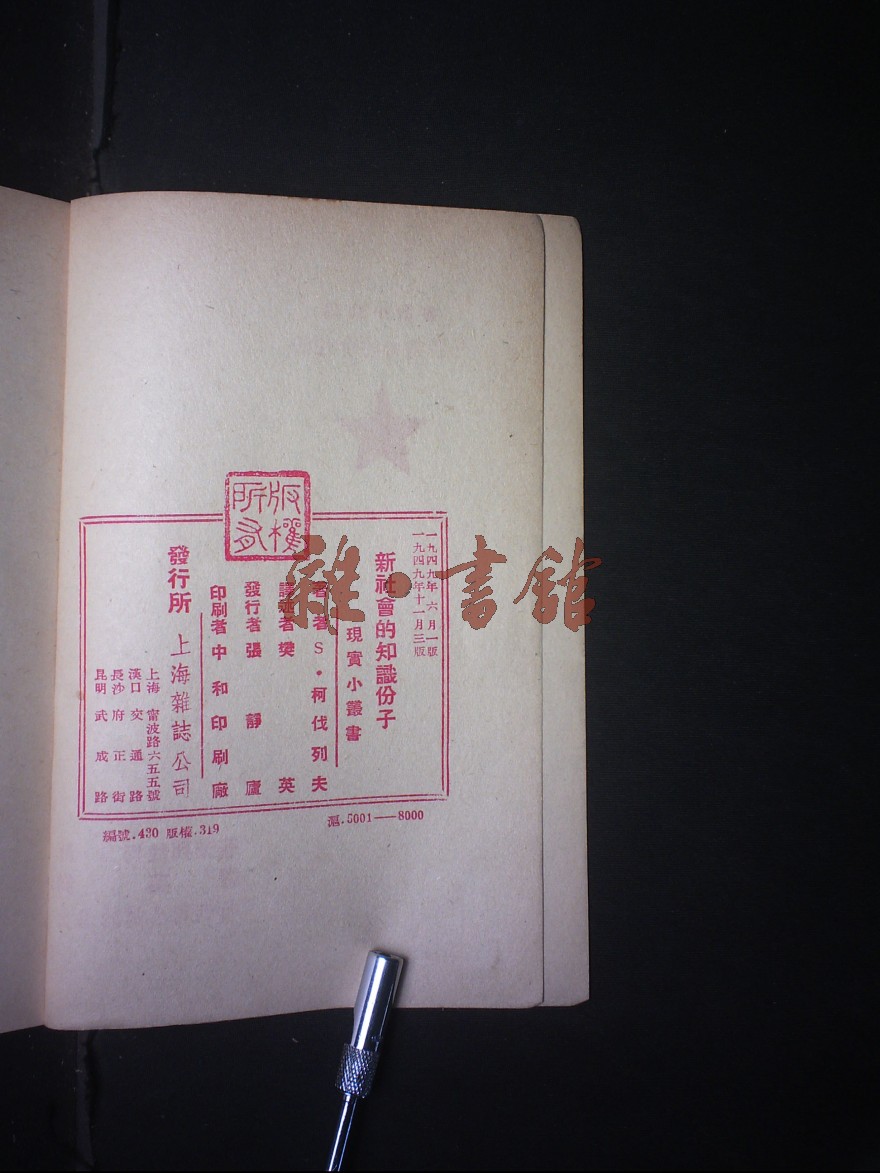 版權所有
一九四九年六月一版
一九四九年十一月三版
新社會的知識份子
現實小叢書
著者 S·柯伐列夫
譯述者 樊英
發行者 張靜廬
印刷者 中和印刷廠
發行所 上海雜誌公司
上海甯波路六五五號
漢口交通路
長沙府正街
昆明武成路
滬.5001——8000
編號.430 版權.319
雜·書館